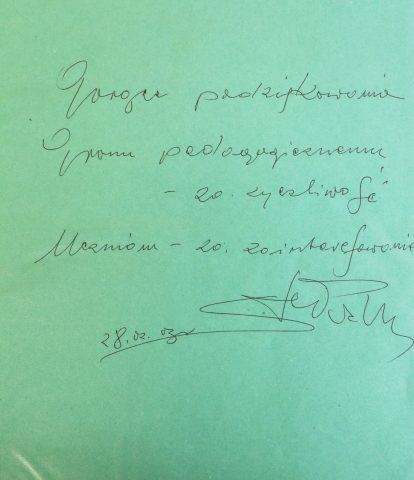 Gorące podziękowania
Gronu pedagogicznemu
– za życzliwość
Uczniom – za zainteresowanie
28.02.03r